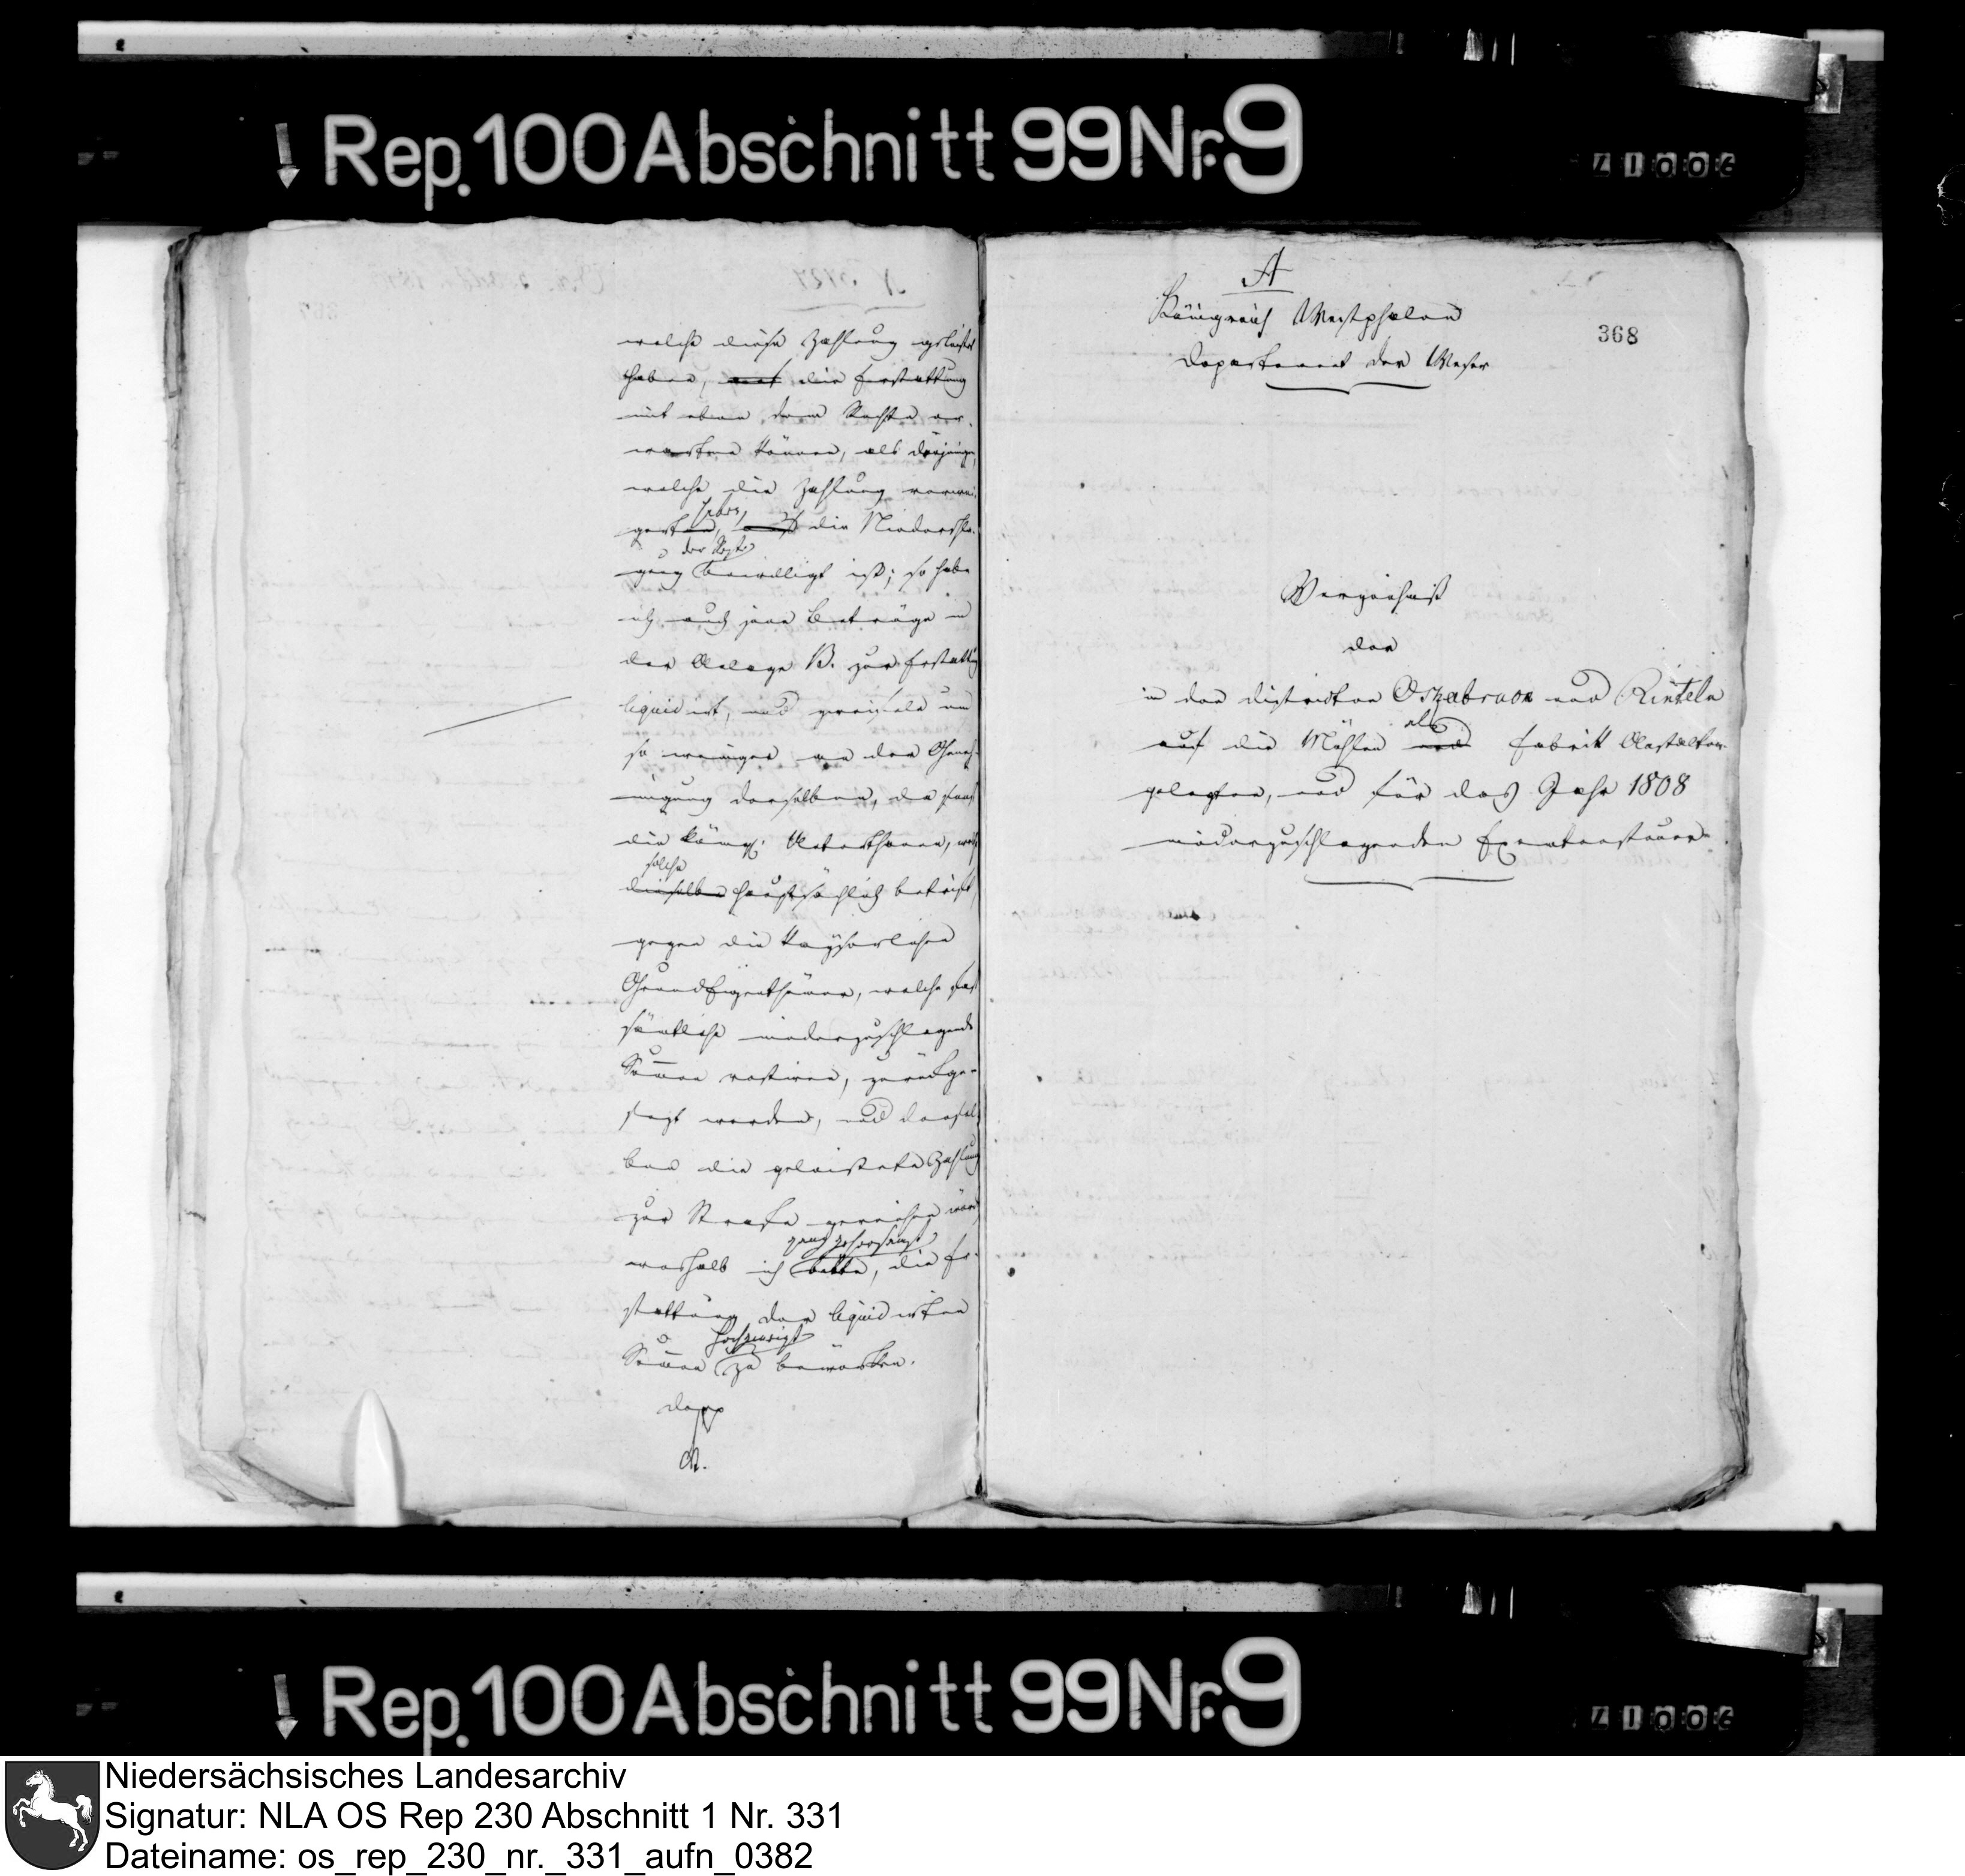 Rep. 100 Abschnitt 99 Nr. 9
welche diese Zahlung geleistet
haben, die Erstattung
mit eben dem Rechte er-
warten können, als diejenigen,
welche die Zahlung verwei-
gerten, die Niederschla-
der Reste
gung bewilligt ist; so habe
ich auch jene Beträge in
der Anlage B. zur Erstattung
liquidirt, und zweifele um
so weniger an der Geneh-
migung derselben, da sonst
die königl. Unterthanen,
solche
dieselben hauptsächlich betrift,
gegen die Kayserlichen
GrundEigenthümer, welche fast
sämtliche niederzuschlagende
Summen restiren, zurückge-
sezt werden, und densel-
ben die geleistete Zahlung
zur Strafe gereichen würde,
ganz gehorsamst
weshalb ich bitte, die Er-
stattung der liquidirten
hochgeneigt
Summen zu bewürken.
A
Königreich Westphalen
Departement der Weser
368
Verzeichniß
der
in den Districten Osnabrück und Rinteln
als
auf die Mühlen und Fabrik Anstalten
gelegten, und für das Jahr 1808
niederzuschlagenden Exemtensteuer
Rep. 100 Abschnitt 99 Nr. 9
Niedersächsisches Landesarchiv
Signatur: NLA OS Rep 230 Abschnitt 1 Nr. 331
Dateiname: os_rep_230_nr._331_aufn_0382